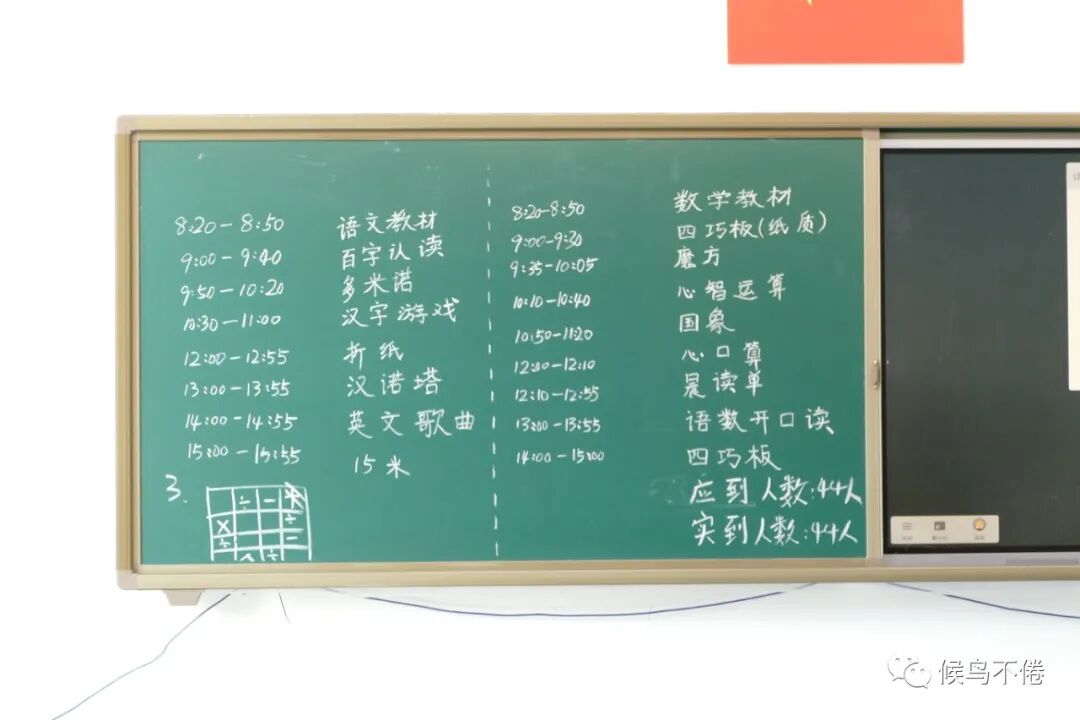 8:20-8:50 语文教材
9:00-9:40 百字认读
9:50-10:20 多米诺
10:30-11:00 汉字游戏
12:00-12:55 折纸
13:00-13:55 汉诺塔
14:00-14:55 英文歌曲
15:00-15:55 15米
3.
÷ -
× ÷
÷ -
÷
8:20-8:50 数学教材
9:00-9:30 四巧板(纸质)
9:35-10:05 魔方
10:10-10:40 心智运算
10:50-11:20 国象
12:00-12:10 心口算
12:10-12:55 晨读单
13:00-13:55 语数开口读
14:00-15:00 四巧板
应到人数:44人
实到人数:44人
候鸟不倦